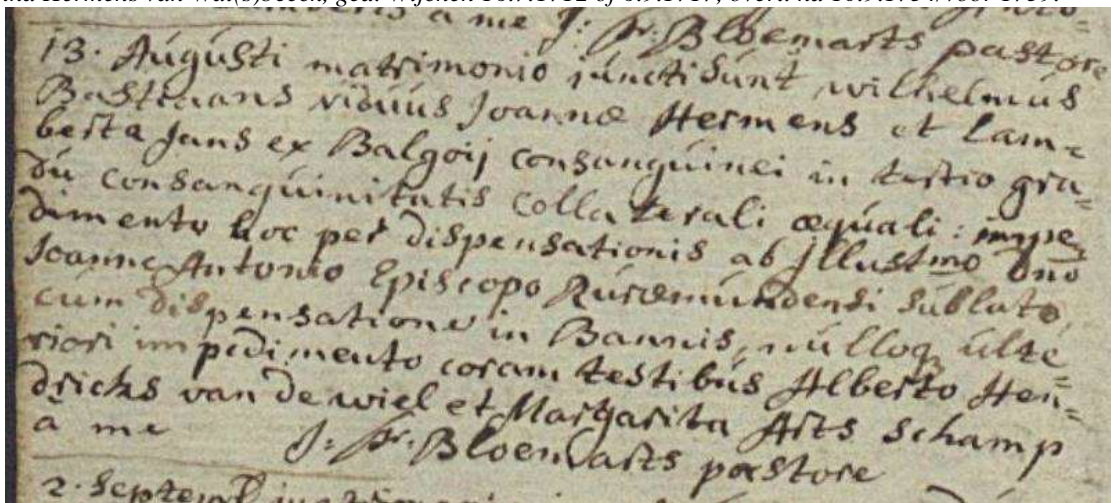 geb. Wijchen
a me J: Fr: Bloemarts pastore
13. Augusti matrimonio iuncti sunt wilhelmus
Bastiaans viduus Joannæ Hermens et Lam=
berta Jans ex Balgoij consanguinei in tertio gra=
du consanguinitatis collaterali æquali: impe=
dimento hoc per dispensationis ab Illustmo Dno
Joanne Antonio Episcopo Ruræmundensi sublato,
cum dispensatione in Bannis, nulloq ulte=
riori impedimento coram testibus Alberto Hen=
dricks van de wiel et Margarita Arts schamp
à me J: Fr: Bloemarts pastore
2. Septemb